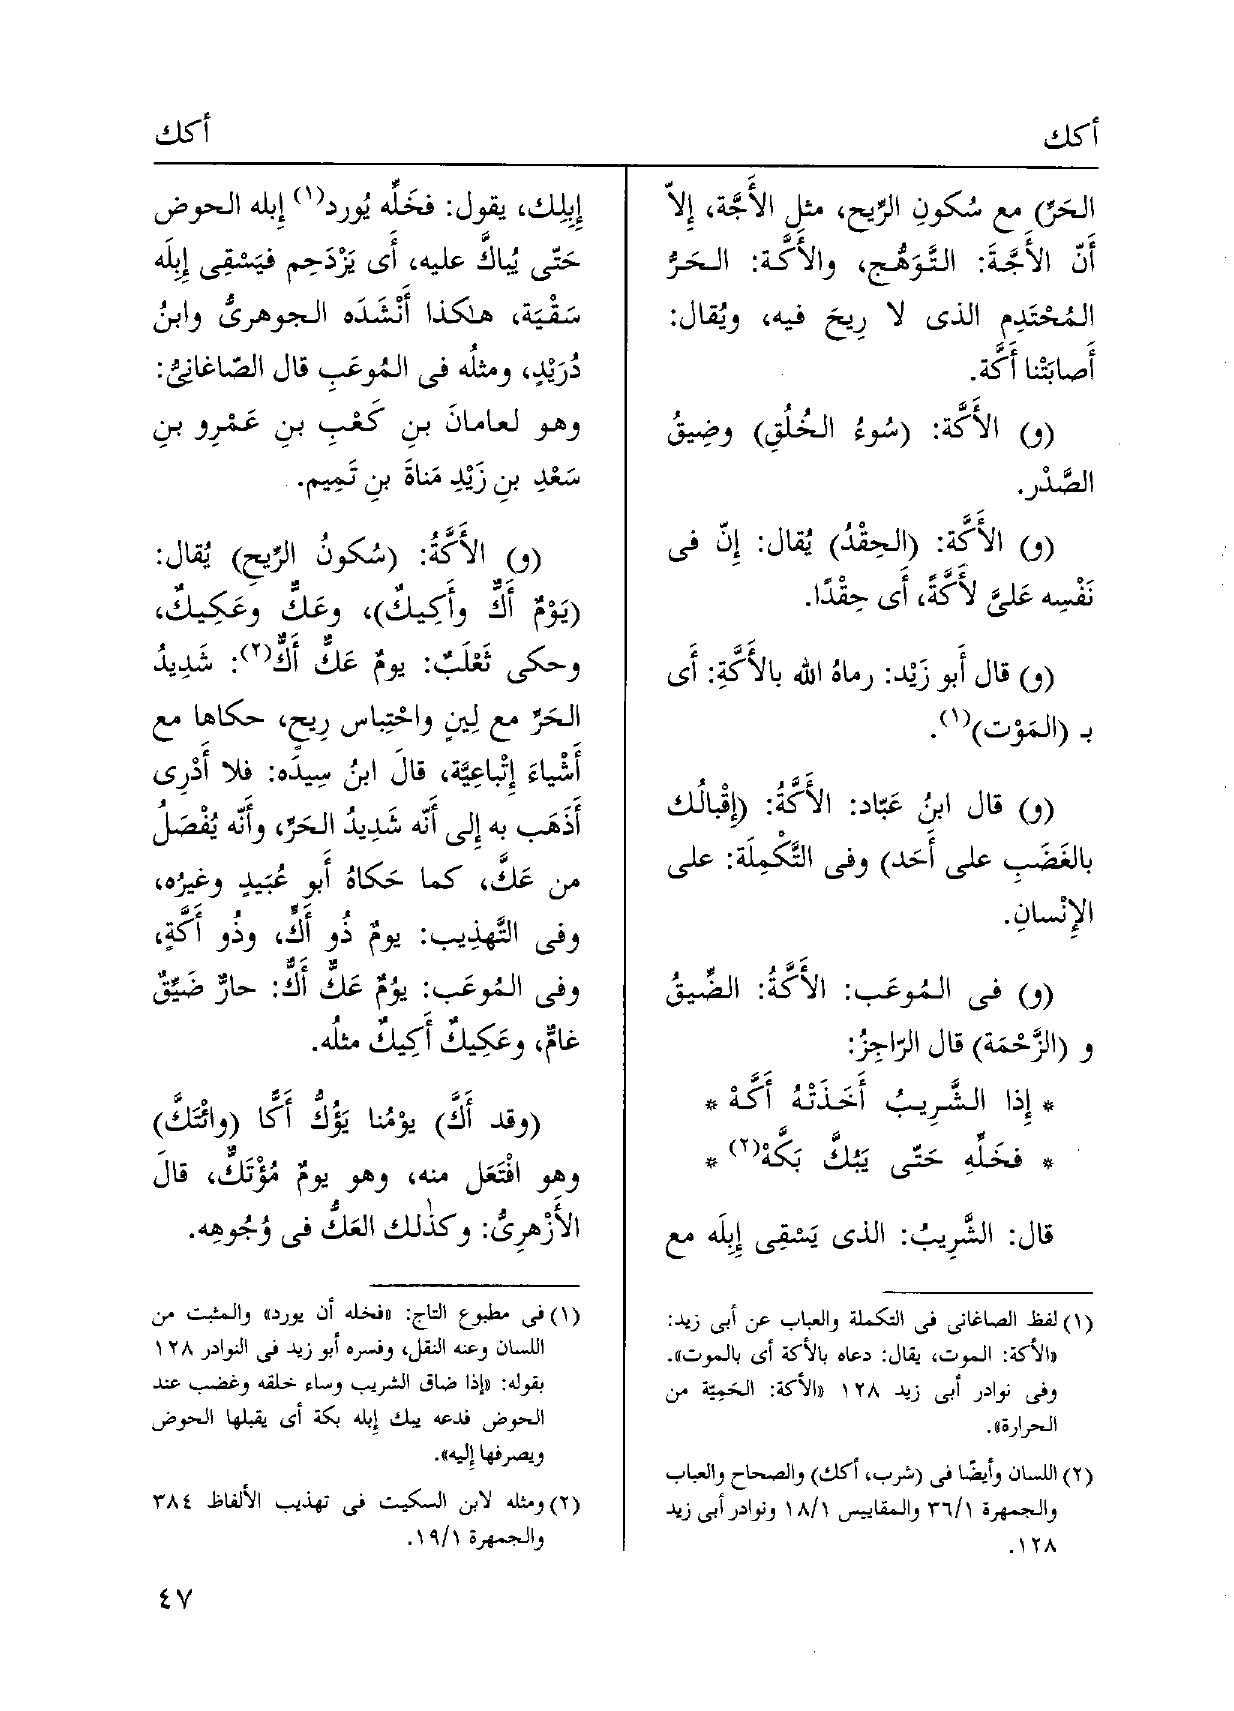 أكك
أكك
الحَرِّ) مع سُكونِ الرِّيح، مثل الأَجَّة، إِلاّ
أَنّ الأَجَّةَ: التَّوَهُّج، والأَكَّة: الحَرُّ
المُحْتَدِم الذى لا رِيحَ فيه، ويُقال:
أَصابَتْنا أَكَّة.
(و) الأَكَّة: (سُوءُ الخُلُقِ) وضِيقُ
الصَّدْر.
(و) الأَكَّة: (الحِقْدُ) يُقال: إِنّ فى
نَفْسِه عَلىَّ لأَكَّةً، أَى حِقْدًا.
(و) قال أَبو زَيْد: رماهُ الله بالأَكَّةِ: أَى
بـ (المَوْت)(١).
(و) قال ابنُ عَبّاد: الأَكَّةُ: (إِقْبالُك
بالغَضَبِ على أَحَد) وفى التَّكْمِلَة: على
الإِنْسانِ.
(و) فى المُوعَب: الأَكَّةُ: الضِّيقُ
و (الزَّحْمَة) قال الرّاجِزُ:
* إِذا الشَّرِيبُ أَخَذَتْهُ أَكَّهْ *
* فخَلِّهِ حَتّى يَبُكَّ بَكَّهْ(٢) *
قال: الشَّرِيبُ: الذى يَسْقِى إِبِلَه مع
(١) لفظ الصاغانى فى التكملة والعباب عن أبى زيد:
«الأكة: الموت، يقال: دعاه بالأكة أى بالموت».
وفى نوادر أبى زيد ١٢٨ «الأكة: الحَمِيّة من
الحرارة».
(٢) اللسان وأيضًا فى (شرب، أكك) والصحاح والعباب
والجمهرة ٣٦/١ والمقاييس ١٨/١ ونوادر أبى زيد
١٢٨.
إِبِلِك، يقول: فخَلِّه يُورد(١) إبله الحوض
حَتّى يُباكَّ عليه، أَى يَزْدَحِم فيَسْقِى إِبِلَه
سَقْيَة، هلكذا أَنْشَدَه الجوهرىُّ وابنُ
دُرَيْدٍ، ومثلُه فى المُوعَبِ قال الصّاغانىُّ:
وهو لعامانَ بن كَعْبِ بنِ عَمْرِو بنِ
سَعْدِ بنِ زَيْدِ مَناةَ بنِ تَمِيم.
(و) الأَكَّةُ: (سُكونُ الرِّيحِ) يُقال:
(يَوْمٌ أَكٌّ وأَكِيكٌ)، وعَكٌّ وعَكِيكٌ،
وحكى ثَعْلَبٌ: يومٌ عَكٌّ أَكٌّ(٢): شَدِيدُ
الحَرّ مع لِينٍ واحْتِباس رِيحٍ، حكاها مع
أَشْياءَ إِتْباعِيَّة، قالَ ابنُ سِيدَه: فلا أَدْرِى
أَذَهَب به إلى أَنّه شَدِيدُ الحَرِّ، وأَنّه يُفْصَلُ
من عَكّ، كما حَكاهُ أَبو عُبَيدٍ وغيرُه،
وفى التَّهذِيب: يومٌ ذُو أَكٍّ، وذُو أَكَّةٍ،
وفى المُوعَب: يوْمٌ عَكٌّ أَكٌّ: حارٌّ ضَيِّقٌ
غامٌّ، وعَكِيكٌ أَكِيكٌ مثلُه.
(وقد أَكَّ) يوْمُنا يَؤُكُّ أَكًّا (وائْتَكَّ)
وهو افْتَعَل منه، وهو يومٌ مُؤْتَكٌّ، قالَ
الأَزْهرِىُّ: وكذٰلك العَكُّ فى وُجُوهِه.
(١) فى مطبوع التاج: «فخله أن يورد» والمثبت من
اللسان وعنه النقل، وفسره أبو زيد فى النوادر ١٢٨
بقوله: «إذا ضاق الشريب وساء خلقه وغضب عند
الحوض فدعه يبك إبله بكة أى يقبلها الحوض
ويصرفها إليه».
(٢) ومثله لابن السكيت فى تهذيب الألفاظ ٣٨٤
والجمهرة ١٩/١.
٤٧